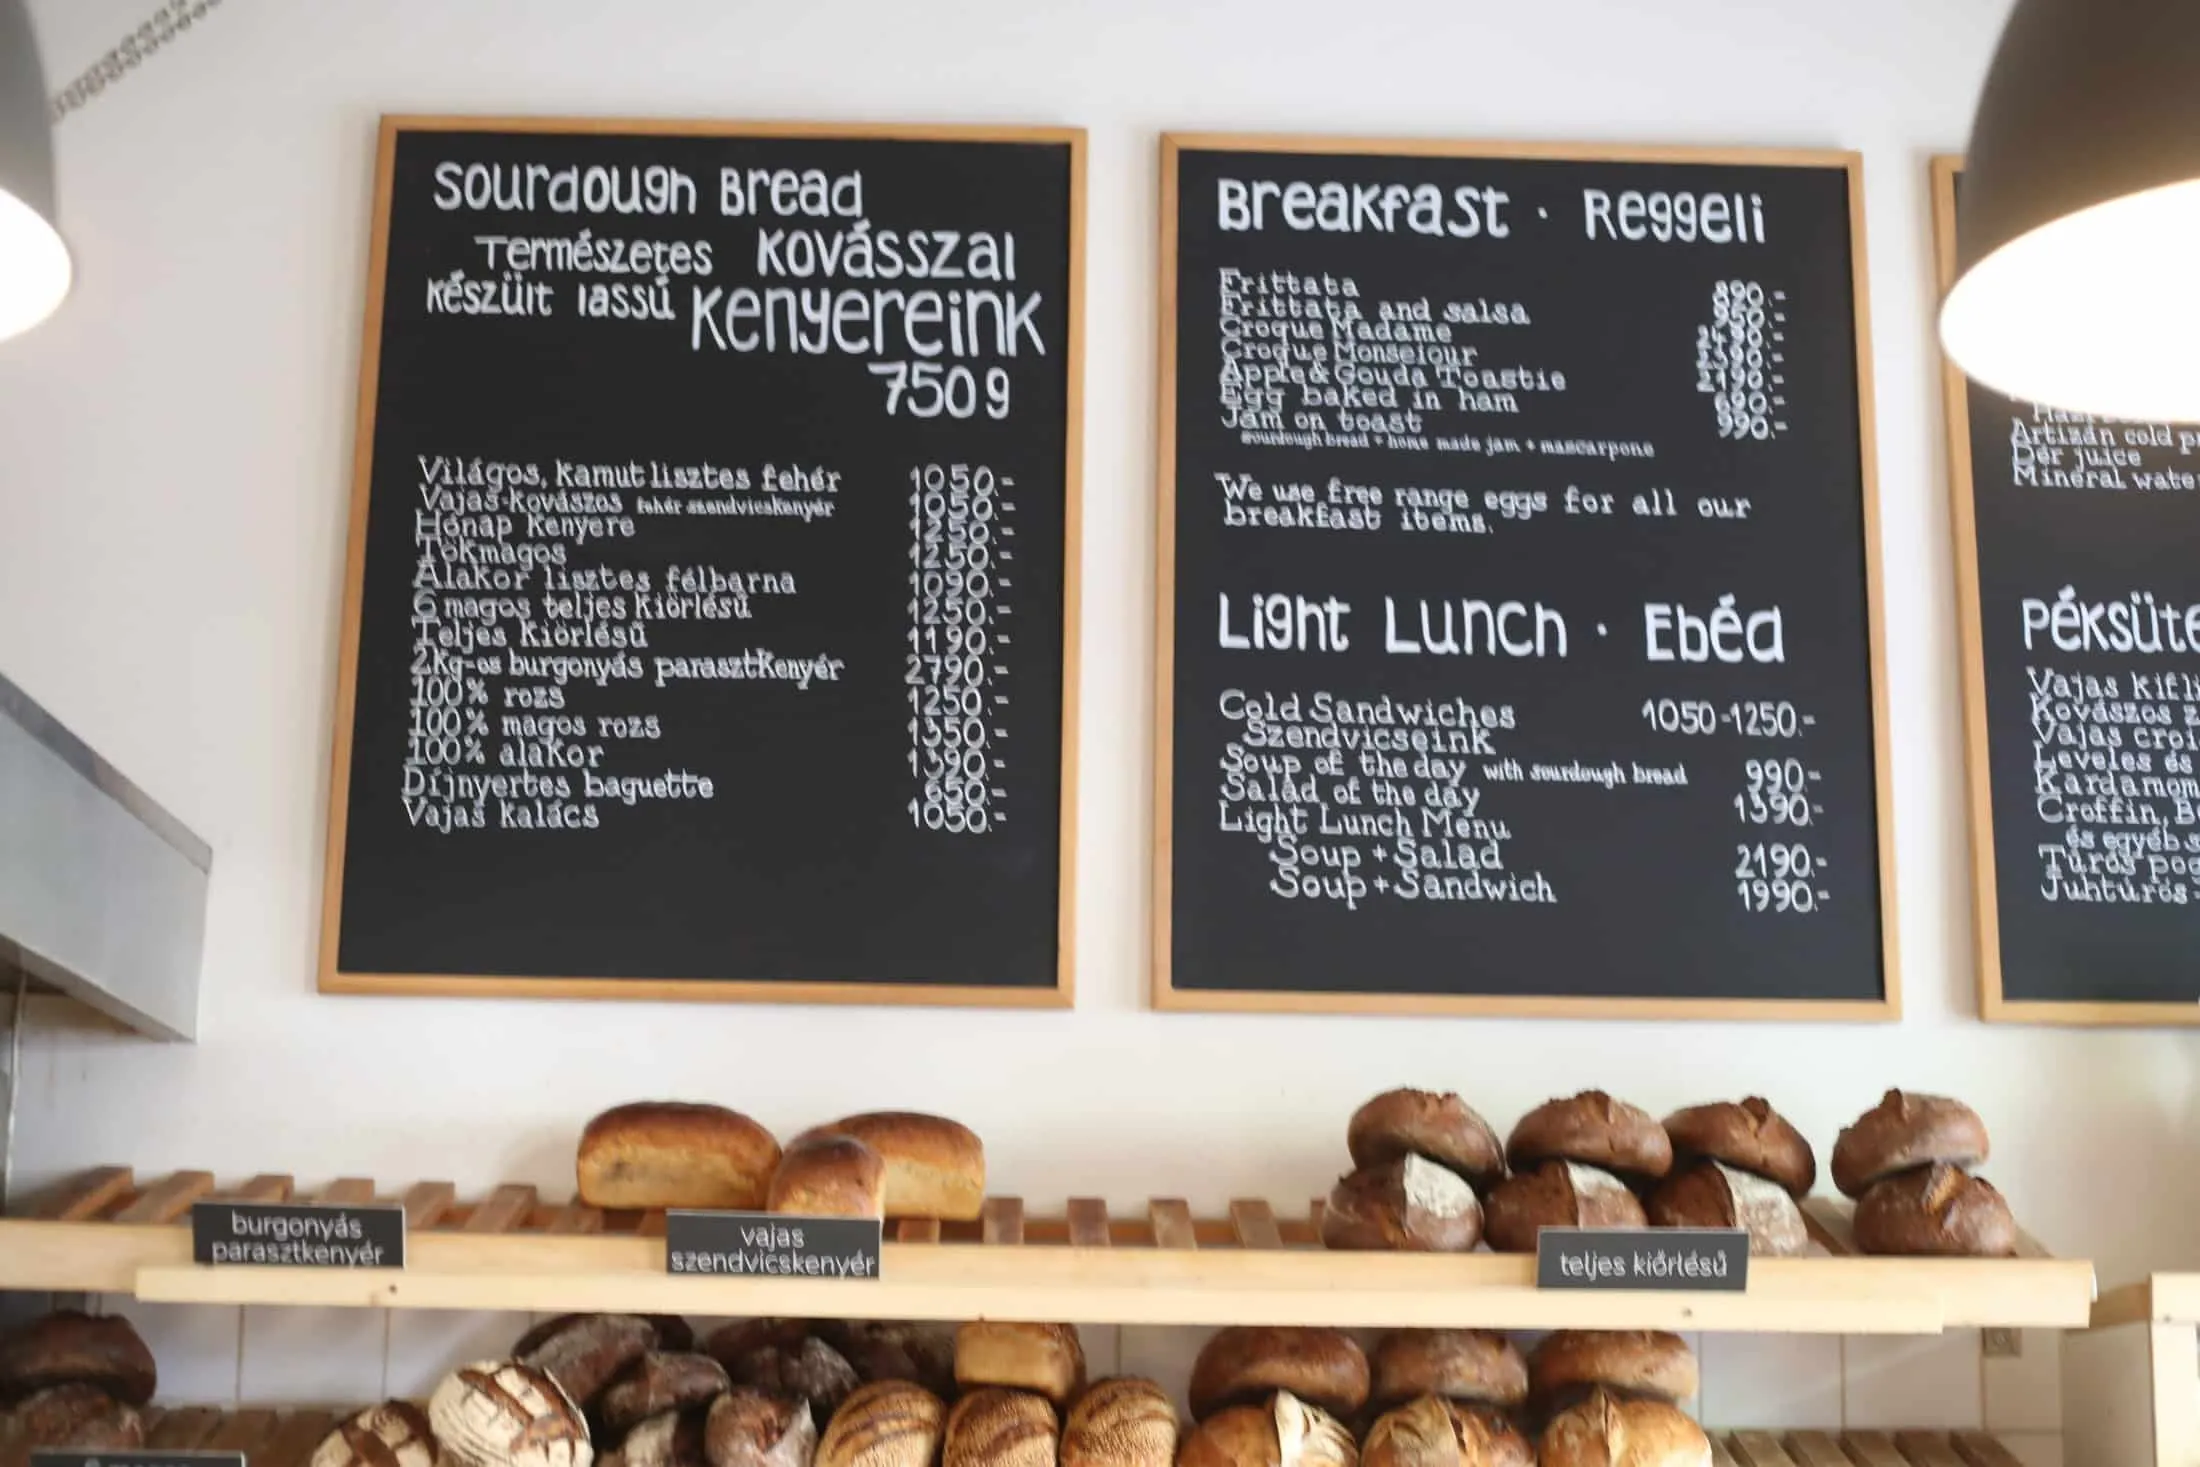 Sourdough Bread
Természetes Kovásszal
Készült lassú Kenyereink
750g
Világos, Kamut lisztes fehér 1050.-
Vajas-kovászos fehér szendvicskenyér 1050.-
Hónap Kenyere 1250.-
Tökmagos 1250.-
Alakor lisztes félbarna 1090.-
6 magos teljes Kiőrlésű 1250.-
Teljes Kiőrlésű 1190.-
2Kg-os burgonyás parasztKenyér 2790.-
100% rozs 1250.-
100% magos rozs 1350.-
100% alakor 1390.-
Díjnyertes baguette 650.-
Vajas kalács 1050.-
Breakfast · Reggeli
Frittata 890.-
Frittata and salsa 950.-
Croque Madame
Croque Monseiour
Apple & Gouda Toastie 2190.-
Egg baked in ham 690.-
Jam on toast 990.-
sourdough bread + home made jam + mascarpone
We use free range eggs for all our
breakfast items.
Light Lunch · Ebéd
Cold Sandwiches 1050-1250.-
Szendvicseink
Soup of the day with sourdough bread 990.-
Salad of the day 1390.-
Light Lunch Menu
Soup + Salad 2190.-
Soup + Sandwich 1990.-
Artizán cold
Dér juice
Mineral
Vajas
Kovászos
Vajas
Leveles és
Croffin,
és egyéb
Túrós
Juhtúrós
burgonyás
parasztkenyér
vajas
szendvicskenyér
teljes kiőrlésű